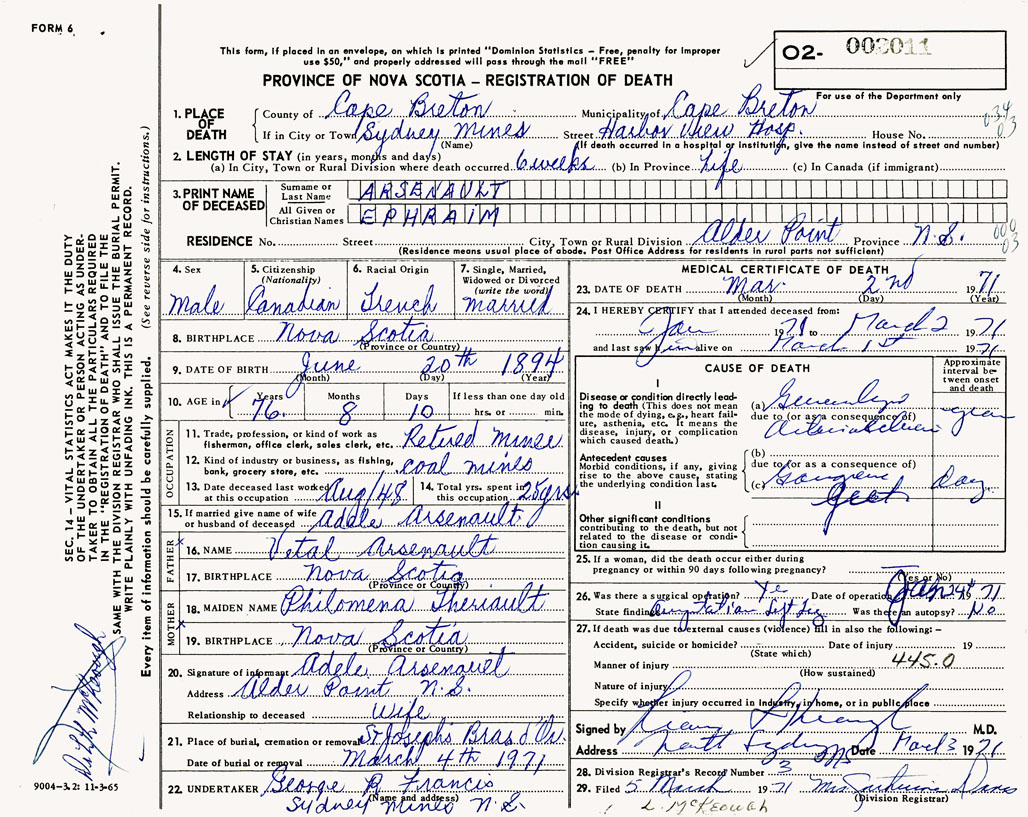 FORM 6
This form, if placed in an envelope, on which is printed "Dominion Statistics – Free, penalty for improper
use $50," and properly addressed will pass through the mail "FREE"
PROVINCE OF NOVA SCOTIA – REGISTRATION OF DEATH
02- 002011
For use of the Department only
034
03
1. PLACE OF DEATH County of Cape Breton Municipality of Cape Breton
If in City or Town Sydney Mines Street Harbor View Hosp. House No.
(Name) (If death occurred in a hospital or institution, give the name instead of street and number)
2. LENGTH OF STAY (in years, months and days)
(a) In City, Town or Rural Division where death occurred 6 weeks (b) In Province Life (c) In Canada (if immigrant)
3. PRINT NAME OF DECEASED Surname or Last Name ARSENAULT
All Given or Christian Names EPHRAIM
000
03
RESIDENCE No. Street City, Town or Rural Division Alder Point Province N.S.
(Residence means usual place of abode. Post Office Address for residents in rural parts not sufficient)
4. Sex Male
5. Citizenship (Nationality) Canadian
6. Racial Origin French
7. Single, Married, Widowed or Divorced (write the word) married
8. BIRTHPLACE Nova Scotia
(Province or Country)
9. DATE OF BIRTH June 20th 1894
(Month) (Day) (Year)
10. AGE in Years 76. Months 8 Days 10 If less than one day old hrs. or min.
OCCUPATION
11. Trade, profession, or kind of work as fisherman, office clerk, sales clerk, etc. Retired Miner
12. Kind of industry or business, as fishing, bank, grocery store, etc. coal mines
13. Date deceased last worked at this occupation Aug/48 14. Total yrs. spent in this occupation 25 yrs.
15. If married give name of wife or husband of deceased Adele Arsenault
FATHER
16. NAME Vital Arsenault
17. BIRTHPLACE Nova Scotia
(Province or Country)
MOTHER
18. MAIDEN NAME Philomena Theriault
19. BIRTHPLACE Nova Scotia
(Province or Country)
20. Signature of informant Adele Arsenault
Address Alder Point N.S.
Relationship to deceased Wife
21. Place of burial, cremation or removal St Josephs Bras d'Or.
Date of burial or removal March 4th 1971
22. UNDERTAKER George R Francis
(Name and address)
Sydney Mines N.S.
MEDICAL CERTIFICATE OF DEATH
23. DATE OF DEATH Mar. 2nd 1971
(Month) (Day) (Year)
24. I HEREBY CERTIFY that I attended deceased from:
Jan 1971 to March 2 1971
and last saw him alive on March 1st 1971
CAUSE OF DEATH
Approximate interval between onset and death
I
Disease or condition directly leading to death (This does not mean the mode of dying, e.g., heart failure, asthenia, etc. It means the disease, injury, or complication which caused death.)
(a)
due to (or as a consequence of)
Antecedent causes
Morbid conditions, if any, giving rise to the above cause, stating the underlying condition last.
(b)
due to (or as a consequence of)
(c) Gangrene days
feet
II
Other significant conditions contributing to the death, but not related to the disease or condition causing it.
25. If a woman, did the death occur either during pregnancy or within 90 days following pregnancy?
(Yes or No)
26. Was there a surgical operation? Yes Date of operation Jan 29th 1971
State findings Amputation left leg Was there an autopsy? No
27. If death was due to external causes (violence) fill in also the following: –
Accident, suicide or homicide? Date of injury 19
(State which)
Manner of injury 445.0
(How sustained)
Nature of injury
Specify whether injury occurred in Industry, in home, or in public place
Signed by M.D.
Address North Sydney NS Date March 3 1971
28. Division Registrar's Record Number 3
29. Filed 5 March 1971 Mrs.
(Division Registrar)
L. McKeough
SEC. 14 – VITAL STATISTICS ACT MAKES IT THE DUTY
OF THE UNDERTAKER OR PERSON ACTING AS UNDER-
TAKER TO OBTAIN ALL THE PARTICULARS REQUIRED
IN THE "REGISTRATION OF DEATH" AND TO FILE THE
SAME WITH THE DIVISION REGISTRAR WHO SHALL ISSUE THE BURIAL PERMIT.
WRITE PLAINLY WITH UNFADING INK. THIS IS A PERMANENT RECORD.
Every item of information should be carefully supplied. (See reverse side for instructions.)
9004-3.2: 11-3-65